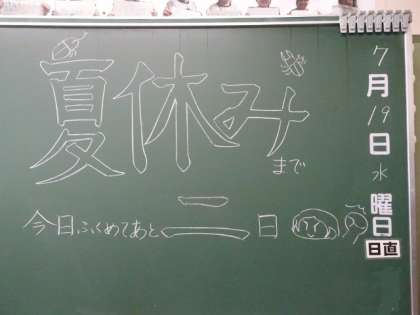 夏休み
まで
今日ふくめてあと二日
7月19日水曜日
日直